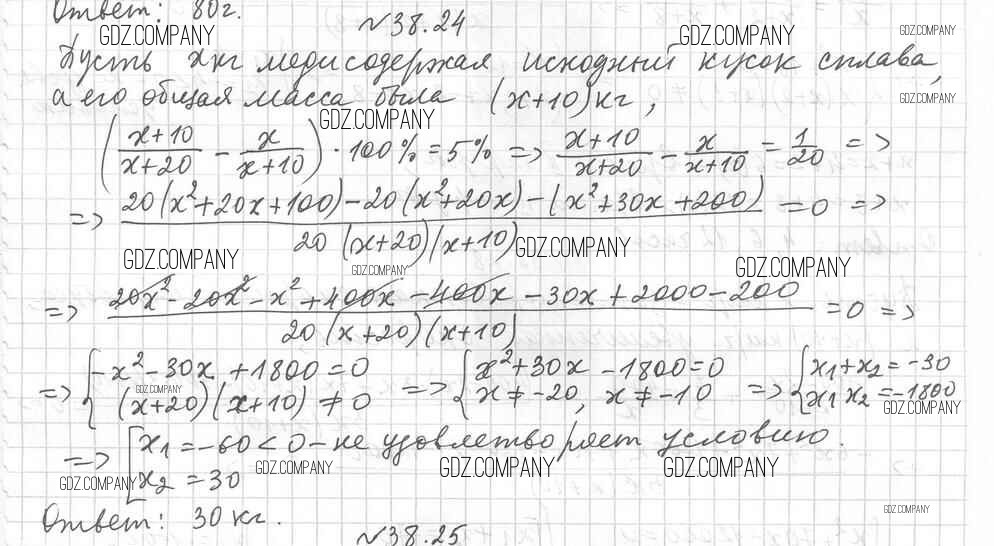 Ответ: 80г.
№38.24
GDZ.COMPANY GDZ.COMPANY GDZ.COMPANY
Пусть x кг меди содержал исходный кусок сплава,
а его общая масса была (x+10) кг,
GDZ.COMPANY GDZ.COMPANY
((x+10)/(x+20) - x/(x+10)) · 100% = 5% => (x+10)/(x+20) - x/(x+10) = 1/20 =>
=> (20(x²+20x+100)-20(x²+20x)-(x²+30x+200))/(20(x+20)(x+10)) = 0 =>
GDZ.COMPANY
GDZ.COMPANY GDZ.COMPANY GDZ.COMPANY
=> (20x²-20x²-x²+400x-400x-30x+2000-200)/(20(x+20)(x+10)) = 0 =>
=> { -x²-30x+1800=0 => { x²+30x-1800=0 => { x₁+x₂=-30
(x+20)(x+10)≠0 x≠-20, x≠-10 x₁x₂=-1800
GDZ.COMPANY GDZ.COMPANY
=> [ x₁=-60<0-не удовлетворяет условию.
x₂=30
GDZ.COMPANY GDZ.COMPANY GDZ.COMPANY GDZ.COMPANY
Ответ: 30 кг.
GDZ.COMPANY
№38.25